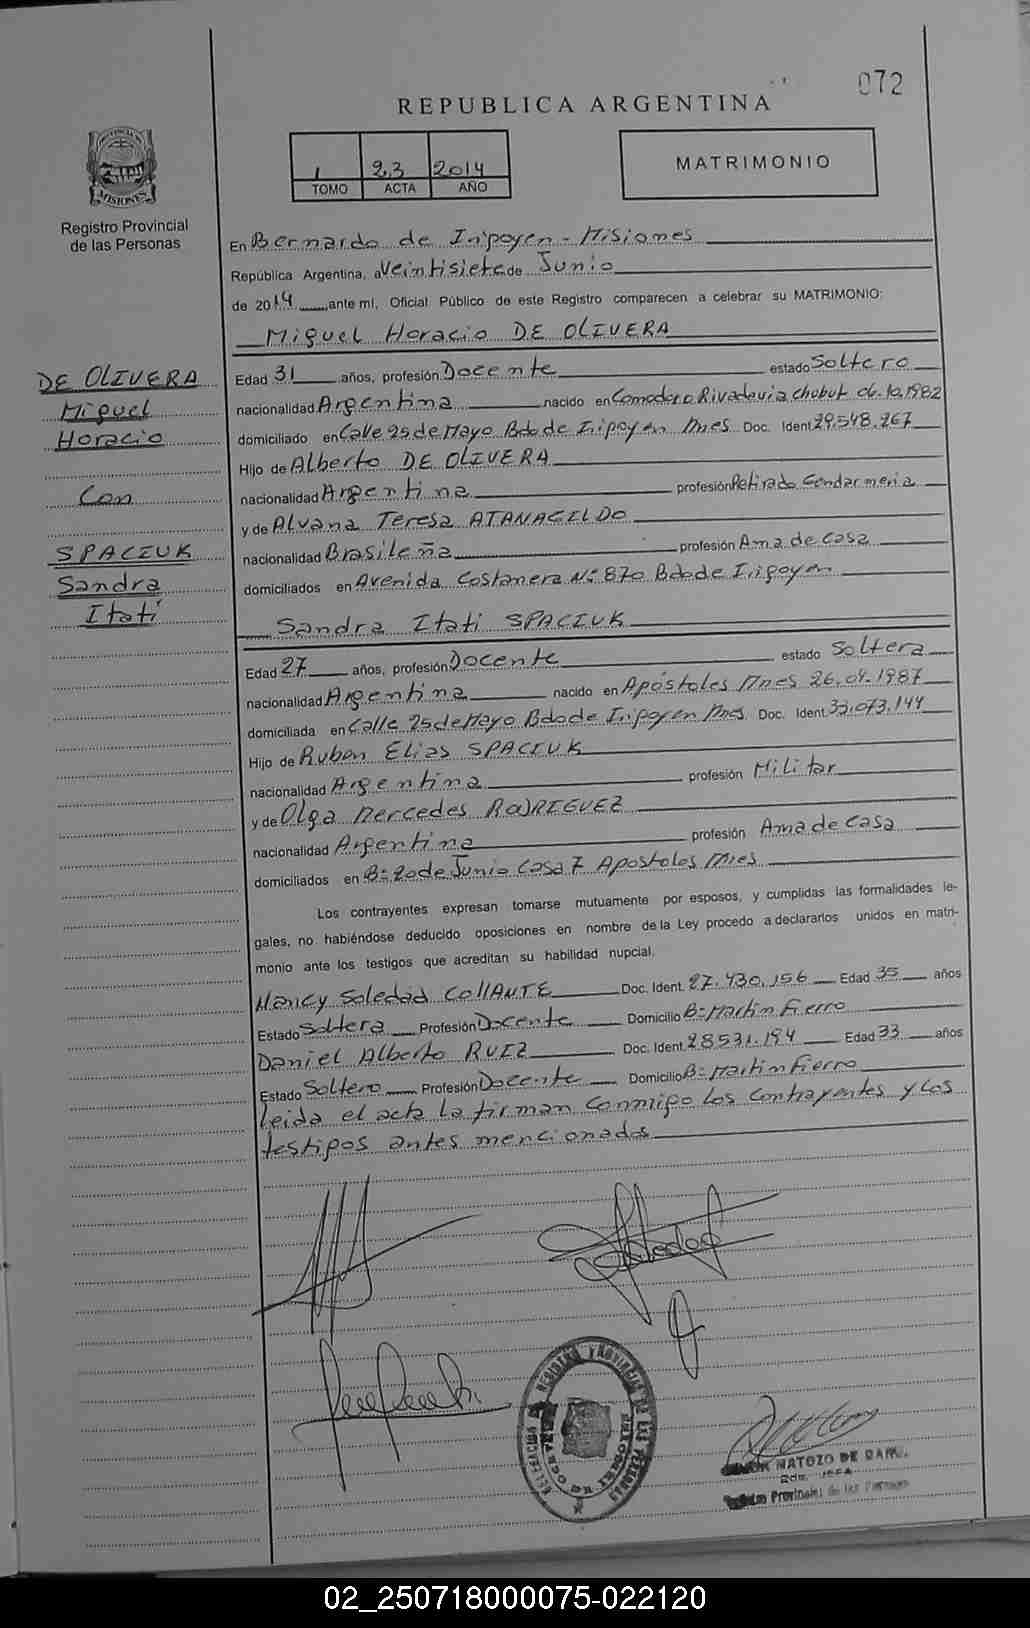 072
REPUBLICA ARGENTINA
PROVINCIA DE
MISIONES
Registro Provincial
de las Personas
1 23 2014
TOMO ACTA AÑO
MATRIMONIO
En Bernardo de Irigoyen - Misiones
República Argentina, a Veintisiete de Junio
de 2014 ante mí, Oficial Público de este Registro comparecen a celebrar su MATRIMONIO:
Miguel Horacio DE OLIVERA
DE OLIVERA
Miguel
Horacio
Con
SPACIUK
Sandra
Itatí
Edad 31 años, profesión Docente estado Soltero
nacionalidad Argentina nacido en Comodoro Rivadavia Chubut 06.10.1982
domiciliado en Calle 25 de Mayo Bdo de Irigoyen Mnes Doc. Ident. 29.548.267
Hijo de Alberto DE OLIVERA
nacionalidad Argentina profesión Retirado Gendarmeria
y de Alvana Teresa ATANAGILDO
nacionalidad Brasileña profesión Ama de Casa
domiciliados en Avenida Costanera Nº 870 Bdo de Irigoyen
Sandra Itati SPACIUK
Edad 27 años, profesión Docente estado Soltera
nacionalidad Argentina nacido en Apóstoles Mnes 26.04.1987
domiciliada en Calle 25 de Mayo Bdo de Irigoyen Mnes Doc. Ident. 33.073.144
Hijo de Ruben Elias SPACIUK
nacionalidad Argentina profesión Militar
y de Olga Mercedes RODRIGUEZ
nacionalidad Argentina profesión Ama de Casa
domiciliados en Bº 20 de Junio Casa 7 Apostoles Mnes
Los contrayentes expresan tomarse mutuamente por esposos, y cumplidas las formalidades le-
gales, no habiéndose deducido oposiciones en nombre de la Ley procedo a declararlos unidos en matri-
monio ante los testigos que acreditan su habilidad nupcial.
Nancy Soledad COLLANTE Doc. Ident. 27.430.156 Edad 35 años
Estado Soltera Profesión Docente Domicilio Bº Martin Fierro
Daniel Alberto RUIZ Doc. Ident. 28531.194 Edad 33 años
Estado Soltero Profesión Docente Domicilio Bº Martin Fierro
leida el acta la firman conmigo los contrayentes y los
testigos antes mencionados
REGISTRO PROVINCIAL DE LAS PERSONAS
MATOZO DE
Registro Provincial de las Personas
02_250718000075-022120